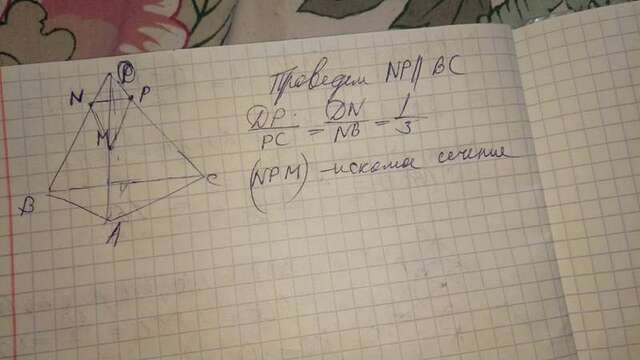 D
N P
M
B C
A
Проведем NP || BC
DP/PC = DN/NB = 1/3
(NPM) - искомое сечение